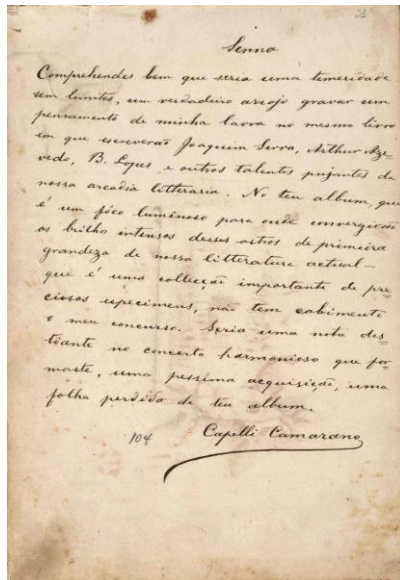 Senna
Comprehendes bem que seria uma temeridade
sem limites, um verdadeiro arrojo gravar um
pensamento de minha lavra no mesmo livro
em que escreverão Joaquim Serra, Arthur Aze-
vedo, B. Lopes e outros talentos pujantes da
nossa arcadia litteraria. No teu album, que
é um fóco luminoso para onde convergirão
os brilhos intensos desses astros de primeira
grandeza de nossa litteratura actual—
que é uma collecção importante de pre-
ciosos especimens, não tem cabimento
o meu concurso. Seria uma nota des-
toante no concerto harmonioso que for-
maste, uma pessima acquisição, uma
folha perdida de teu album.
104 Capilli Camarano